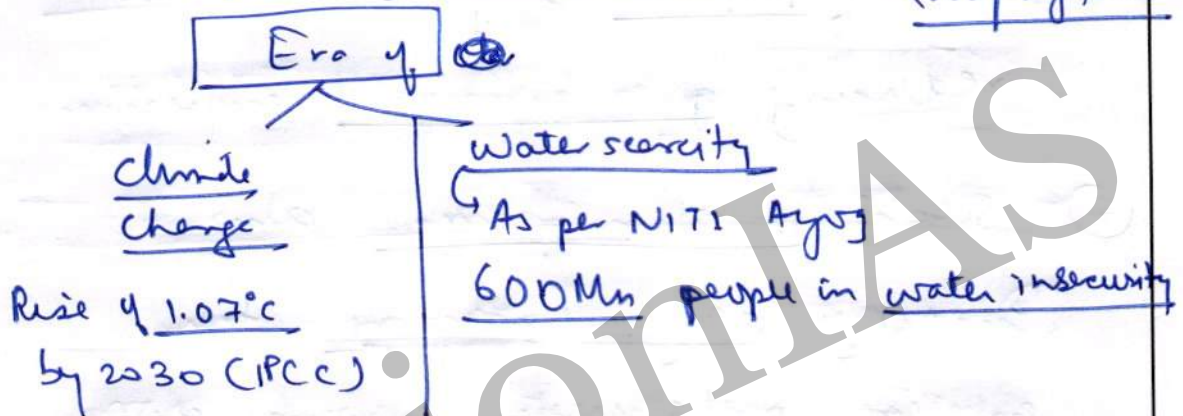 Era of
Climate
Change
Rise of 1.07°C
by 2030 (IPCC)
Water scarcity
As per NITI Ayog
600Mn people in water insecurity
onIAS